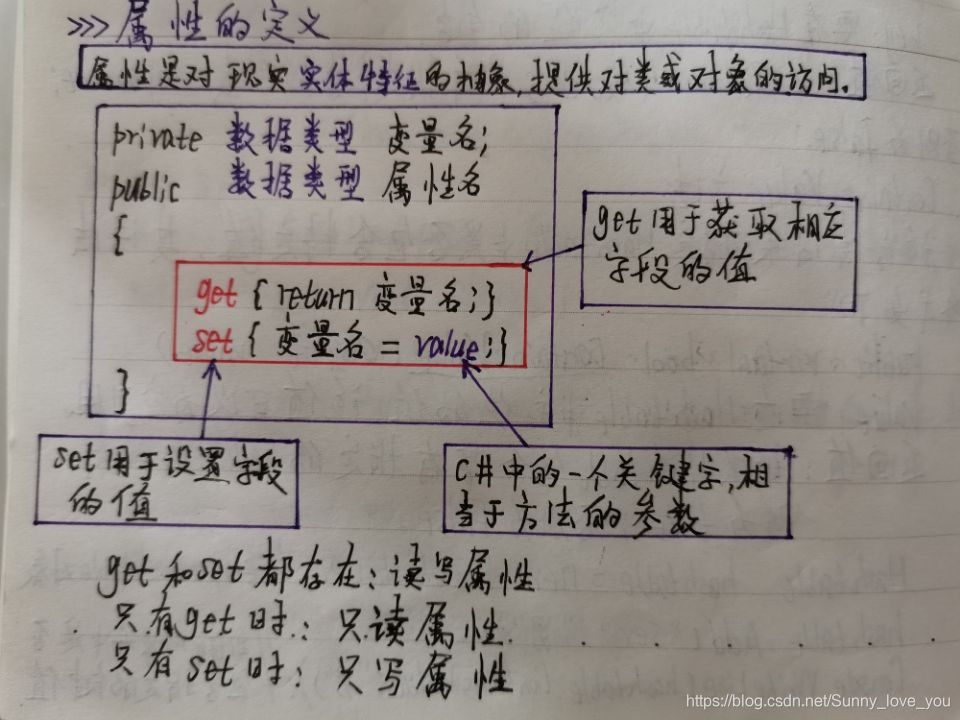 >>> 属性的定义
属性是对现实实体特征的抽象,提供对类或对象的访问。
private 数据类型 变量名;
public 数据类型 属性名
{
get { return 变量名;}
set { 变量名 = value;}
}
get用于获取相应
字段的值
set用于设置字段
的值
C井中的一个关键字,相
当于方法的参数
get和set都存在:读写属性
只有get时:只读属性.
只有set时:只写属性
https://blog.csdn.net/Sunny_love_you